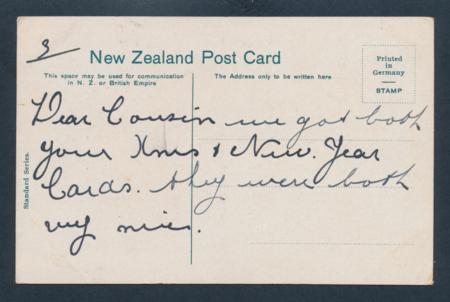 3
New Zealand Post Card
This space may be used for communication
in N. Z. or British Empire
The Address only to be written here
Printed
in
Germany
STAMP
Standard Series.
Dear Cousin we got both
your Xmas & New. Year
Cards. they were both
vy nice.